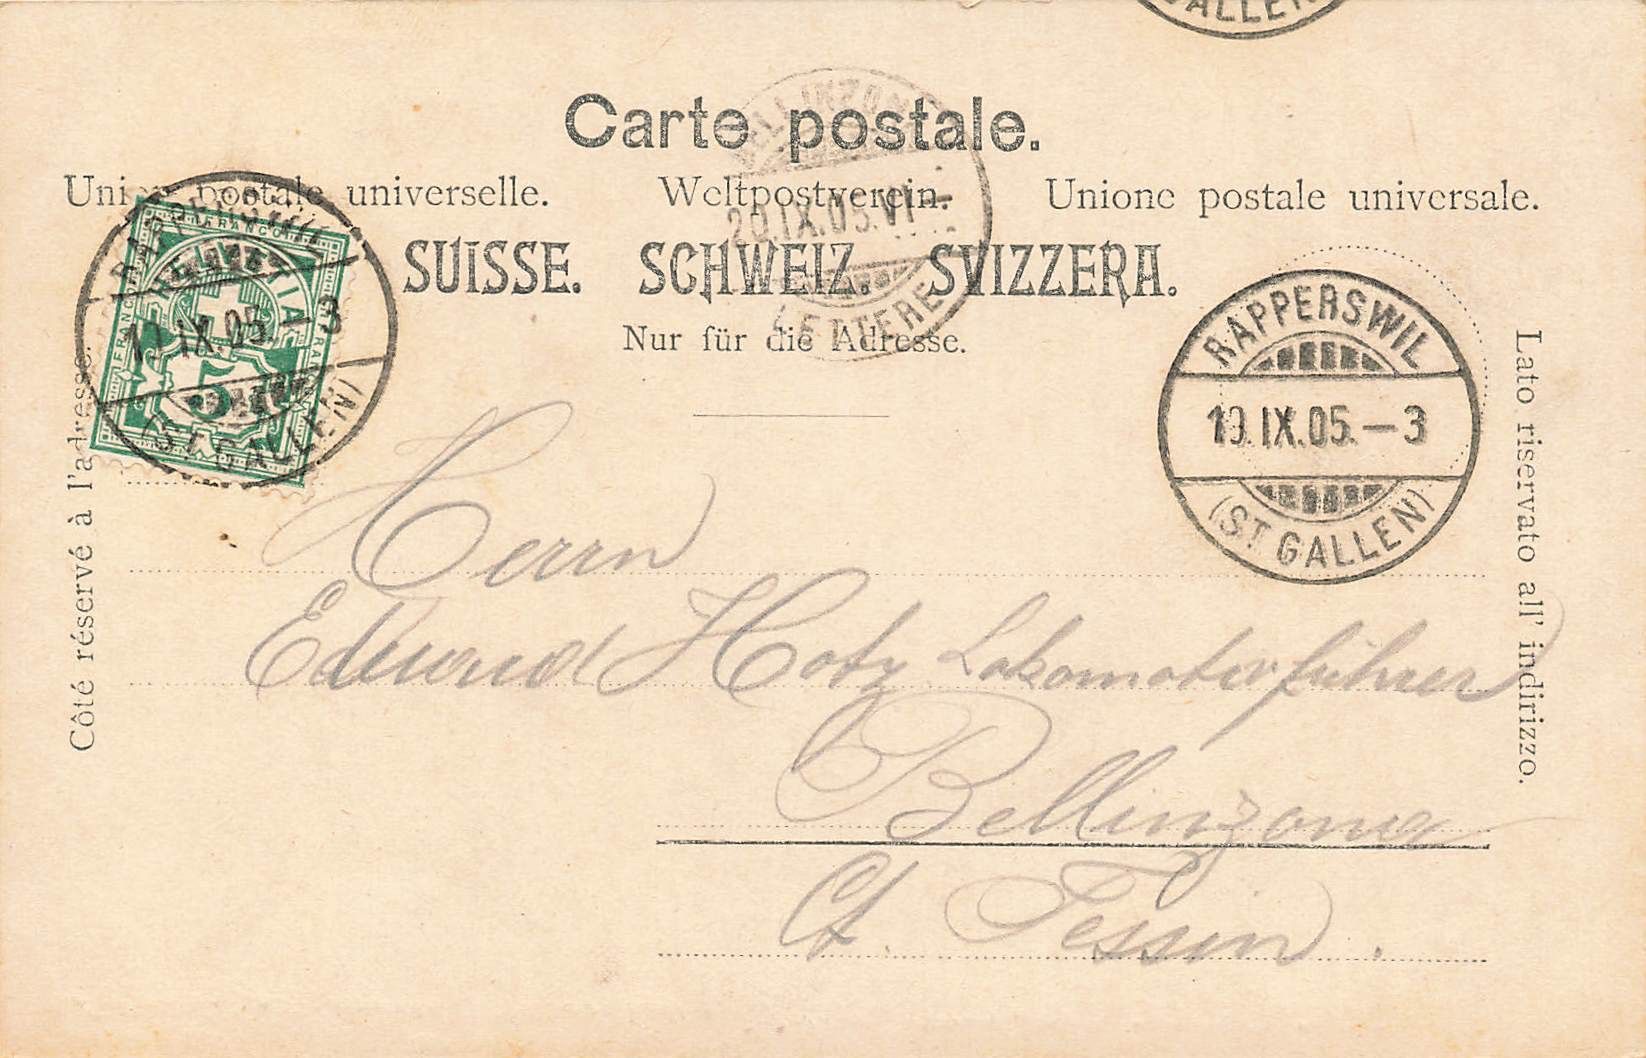 GALLEN
Carte postale.
Union postale universelle. Weltpostverein. Unione postale universale.
SUISSE. SCHWEIZ. SVIZZERA.
Nur für die Adresse.
BELLINZONA
20.IX.05.VI-
LETTERE
RAPPERSWIL
19.IX.05.-3
(ST. GALLEN)
FRANCO
FRANCO
FRANCO
HELVETIA
5
RAPPERSWIL
19.IX.05.-3
(ST. GALLEN)
Côté réservé à l'adresse.
Lato riservato all' indirizzo.
Herrn
Eduard Hotz Lokomotivführer
Bellinzona
Ct. Tessin.